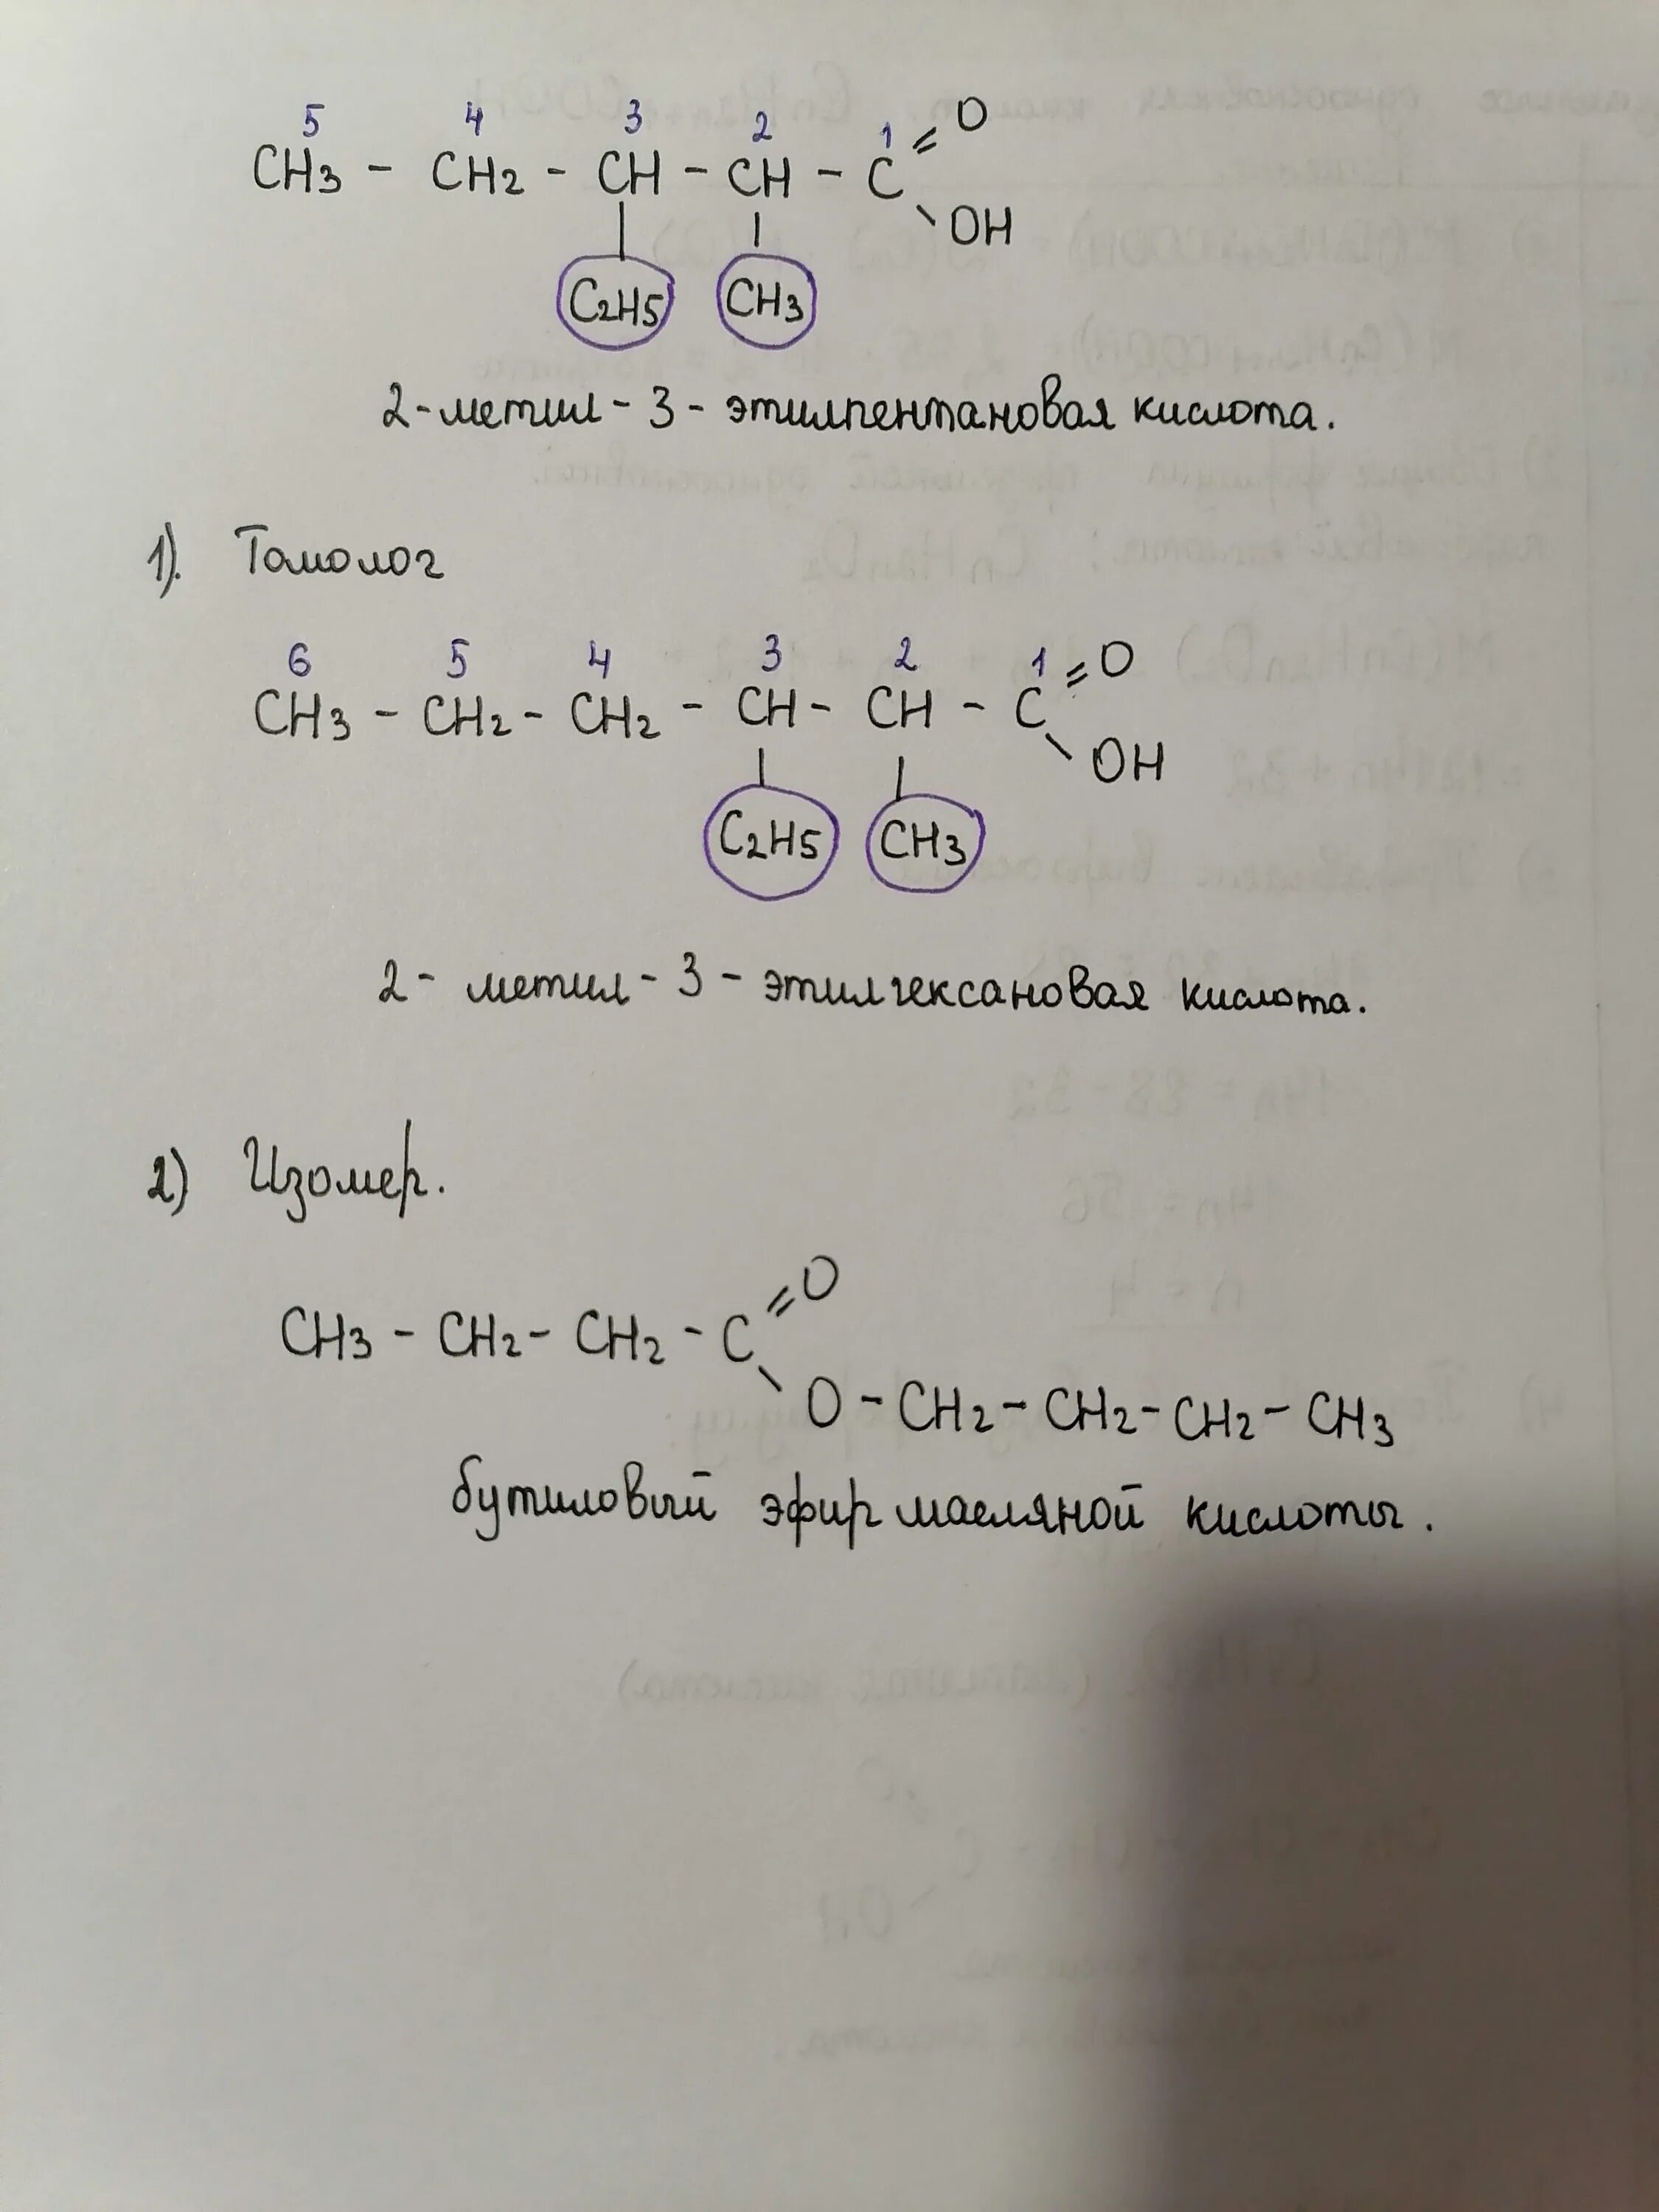 5 4 3 2 1 O
CH3 - CH2 - CH - CH - C
OH
C2H5 CH3
2-метил-3-этилпентановая кислота.
1). Гомолог
6 5 4 3 2 1 O
CH3 - CH2 - CH2 - CH - CH - C
OH
C2H5 CH3
2-метил-3-этилгексановая кислота.
2) Изомер.
O
CH3 - CH2 - CH2 - C
O - CH2 - CH2 - CH2 - CH3
бутиловый эфир масляной кислоты.